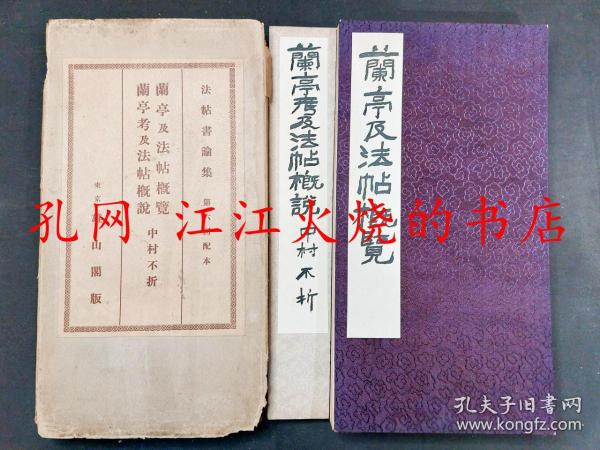 蘭亭及法帖概覽
蘭亭考及法帖概說 中村不折
法帖書論集 第 配本
蘭亭及法帖概覽
蘭亭考及法帖概說
中村不折
東京 山閣版
孔网 江江火烧的书店
孔夫子旧书网
www.kongfz.com